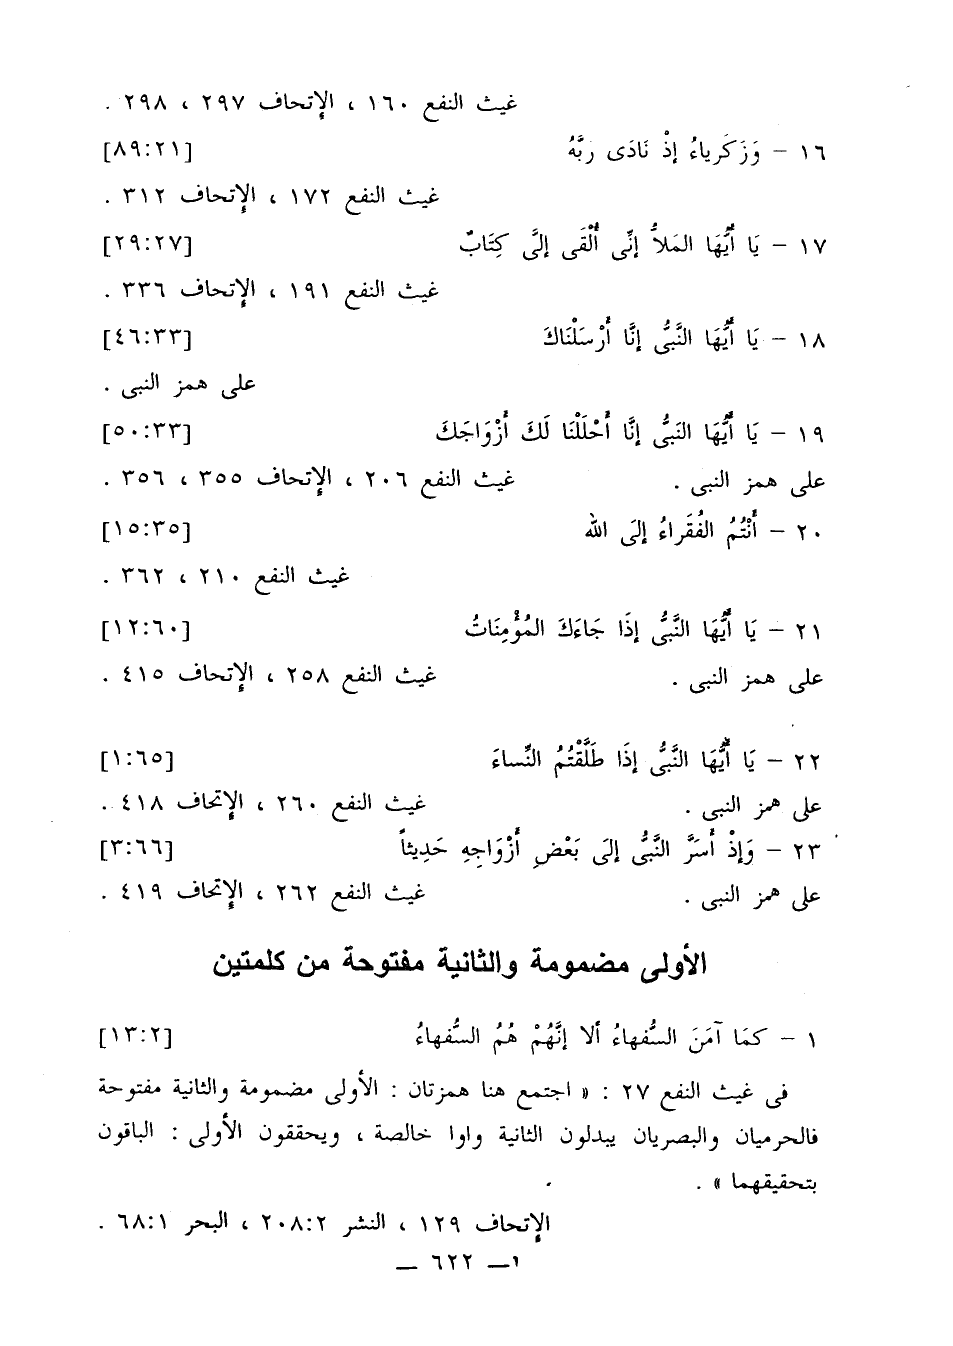 غيث النفع ١٦٠ ، الإتحاف ٢٩٧ ، ٢٩٨ .
١٦ – وَزَكَرياءُ إذْ نَادَى ربَّهُ [٨٩:٢١]
غيث النفع ١٧٢ ، الإتحاف ٣١٢ .
١٧ – يَا أَيُّهَا المَلأُ إنِّى أُلْقَى إلىَّ كِتَابٌ [٢٩:٢٧]
غيث النفع ١٩١ ، الإتحاف ٣٣٦ .
١٨ – يَا أَيُّهَا النَّبىُّ إنَّا أَرْسَلْنَاكَ [٤٦:٣٣]
على همز النبى .
١٩ – يَا أَيُّهَا النَبىُّ إنَّا أَحْلَلْنَا لَكَ أَزْوَاجَكَ [٥٠:٣٣]
على همز النبى . غيث النفع ٢٠٦ ، الإتحاف ٣٥٥ ، ٣٥٦ .
٢٠ – أَنْتُمُ الفُقَراءُ إلَى الله [١٥:٣٥]
غيث النفع ٢١٠ ، ٣٦٢ .
٢١ – يَا أَيُّهَا النَّبىُّ إذَا جَاءَكَ المُؤْمِنَاتُ [١٢:٦٠]
على همز النبى . غيث النفع ٢٥٨ ، الإتحاف ٤١٥ .
٢٢ – يَا أَيُّهَا النَّبىُّ إذَا طَلَّقْتُمُ النِّساءَ [١:٦٥]
على همز النبى . غيث النفع ٢٦٠ ، الإتحاف ٤١٨ .
٢٣ – وَإذْ أَسَرَّ النَّبىُّ إلىَ بَعْضِ أَزْوَاجِهِ حَدِيثاً [٣:٦٦]
على همز النبى . غيث النفع ٢٦٢ ، الإتحاف ٤١٩ .
الأولى مضمومة والثانية مفتوحة من كلمتين
١ – كمَا آمَنَ السُّفهاءُ ألا إنَّهُمْ هُمُ السُّفهاءُ [١٣:٢]
فى غيث النفع ٢٧ : « اجتمع هنا همزتان : الأولى مضمومة والثانية مفتوحة
فالحرميان والبصريان يبدلون الثانية واوا خالصة ، ويحققون الأولى : الباقون
بتحقيقهما » .
الإتحاف ١٢٩ ، النشر ٢٠٨:٢ ، البحر ٦٨:١ .
— ٦٢٢ —